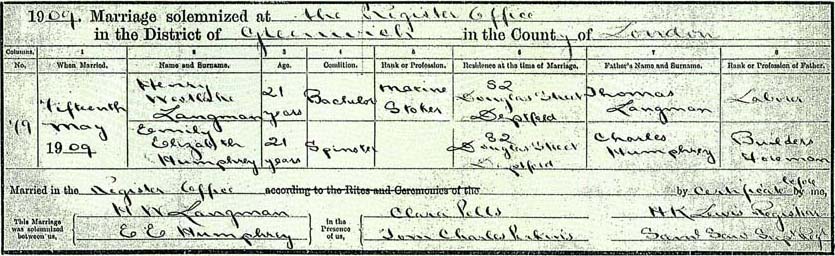 1909. Marriage solemnized at the Register Office
in the District of Greenwich in the County of London
Columns. 1 2 3 4 5 6 7 8
No. When Married. Name and Surname. Age. Condition. Rank or Profession. Residence at the time of Marriage. Father's Name and Surname. Rank or Profession of Father.
79 Fifteenth May 1909
Henry Westlake Langman 21 years Bachelor Marine Stoker 82 Douglas Street Deptford Thomas Langman Labourer
Emily Elizabeth Humphrey 21 years Spinster 82 Douglas Street Deptford Charles Humphrey Builders Foreman
Married in the Register Office according to the Rites and Ceremonies of the by Certificate before by me,
This Marriage was solemnized between us,
H W Langman
E E Humphrey
In the Presence of us,
Clara Pells
Tom Charles
H K Lewis Registrar
Saml Saw Supt Reg